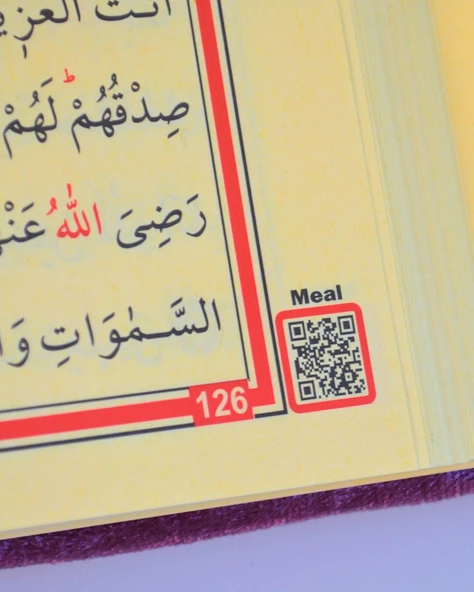 أنت العزيز
صِدْقُهُمْ ۚ لَهُمْ
رَضِيَ اللّٰهُ عَنْهُمْ
السَّمٰوَاتِ وَا
Meal
126